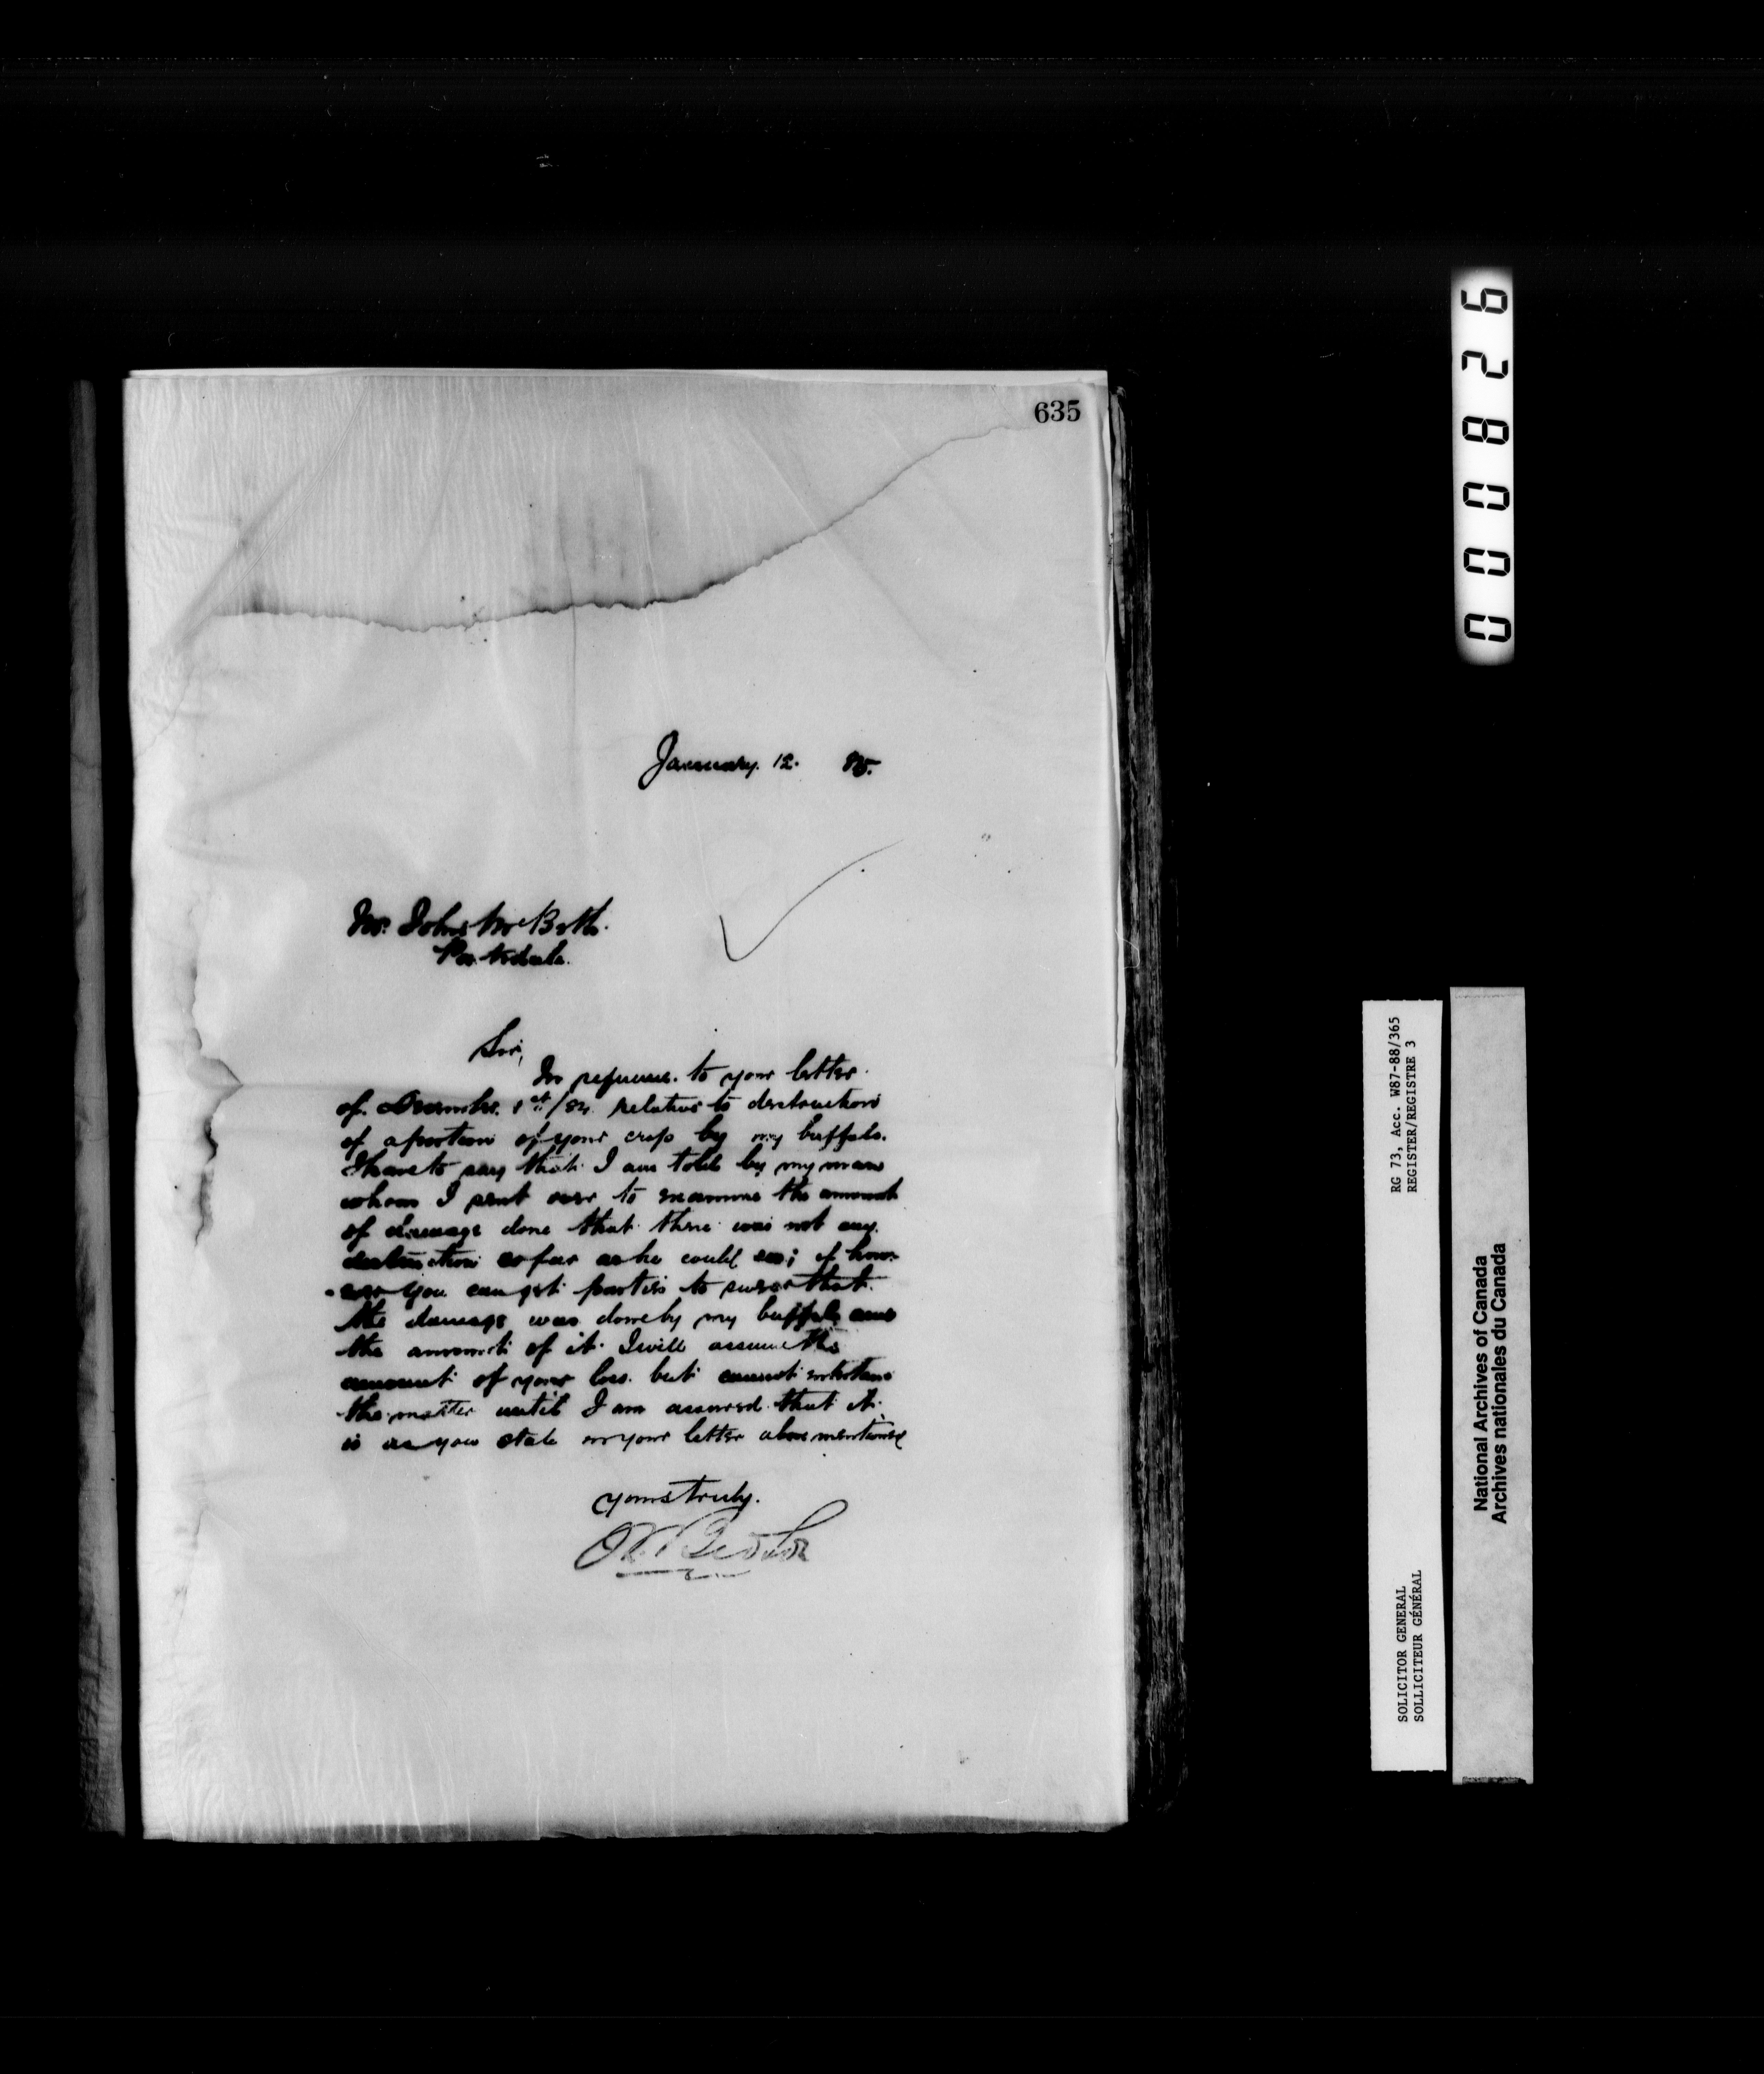 635
January. 12. 85.
Mr. John McBeth.
Parkdale.
Sir,
In reference. to your letter.
of. December. 1st/84. relative to destruction
of a portion of your crop by my buffalo.
I have to say that I am told by my man
whom I sent over to examine the amount
of damage done that there was not any.
destruction so far as he could see; if how-
-ever you can get parties to swear that.
the damage was done by my buffalo and
the amount of it. I will assume the
amount of your loss. but cannot entertain
the matter until I am assured that it.
is as you state in your letter above mentioned
Yours truly.
000826
RG 73, Acc. W87-88/365
REGISTER/REGISTRE 3
SOLICITOR GENERAL
SOLLICITEUR GÉNÉRAL
National Archives of Canada
Archives nationales du Canada